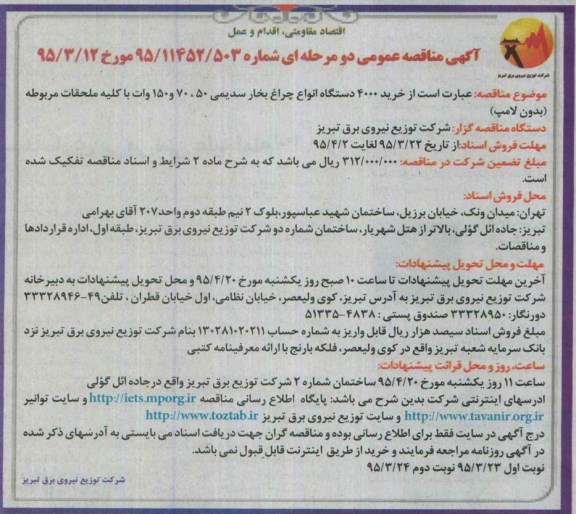 اقتصاد مقاومتی، اقدام و عمل
آگهی مناقصه عمومی دو مرحله ای شماره ۹۵/۱۱۴۵۲/۵۰۳ مورخ ۹۵/۳/۱۲
شرکت توزیع نیروی برق تبریز
موضوع مناقصه: عبارت است از خرید ۴۰۰۰ دستگاه انواع چراغ بخار سدیمی ۵۰، ۷۰ و۱۵۰ وات با کلیه ملحقات مربوطه
(بدون لامپ)
دستگاه مناقصه گزار: شرکت توزیع نیروی برق تبریز
مهلت فروش اسناد:از تاریخ ۹۵/۳/۲۲ لغایت ۹۵/۴/۲
مبلغ تضمین شرکت در مناقصه: ۳۱۲/۰۰۰/۰۰۰ ریال می باشد که به شرح ماده ۲ شرایط و اسناد مناقصه تفکیک شده
است.
محل فروش اسناد:
تهران: میدان ونک، خیابان برزیل، ساختمان شهید عباسپور،بلوک ۲ نیم طبقه دوم واحد۲۰۷ آقای بهرامی
تبریز: جاده ائل گؤلی، بالاتر از هتل شهریار، ساختمان شماره دو شرکت توزیع نیروی برق تبریز،طبقه اول، اداره قراردادها
و مناقصات.
مهلت و محل تحویل پیشنهادات:
آخرین مهلت تحویل پیشنهادات تا ساعت ۱۰ صبح روز یکشنبه مورخ ۹۵/۴/۲۰ و محل تحویل پیشنهادات به دبیرخانه
شرکت توزیع نیروی برق تبریز به آدرس تبریز، کوی ولیعصر، خیابان نظامی، اول خیابان قطران ، تلفن۴۹-۳۳۳۲۸۹۴۶
دورنگار: ۳۳۳۲۸۹۵۰ صندوق پستی : ۴۸۳۸-۵۱۳۳۵
مبلغ فروش اسناد سیصد هزار ریال قابل واریز به شماره حساب ۱۳۰۲۸۱۰۲۰۲۱۱ بنام شرکت توزیع نیروی برق تبریز نزد
بانک سرمایه شعبه تبریز واقع در کوی ولیعصر، فلکه بارنج با ارائه معرفینامه کتبی
ساعت، روز و محل قرائت پیشنهادات:
ساعت ۱۱ روز یکشنبه مورخ ۹۵/۴/۲۰ ساختمان شماره ۲ شرکت توزیع برق تبریز واقع درجاده ائل گؤلی
ادرسهای اینترنتی شرکت بدین شرح می باشد: پایگاه اطلاع رسانی مناقصه http://iets.mporg.ir و سایت توانیر
http://www.tavanir.org.ir و سایت توزیع نیروی برق تبریز http://www.toztab.ir
درج آگهی در سایت فقط برای اطلاع رسانی بوده و مناقصه گران جهت دریافت اسناد می بایستی به آدرسهای ذکر شده
در آگهی روزنامه مراجعه فرمایند و خرید از طریق اینترنت قابل قبول نمی باشد.
نوبت اول ۹۵/۳/۲۳ نوبت دوم ۹۵/۳/۲۴
شرکت توزیع نیروی برق تبریز